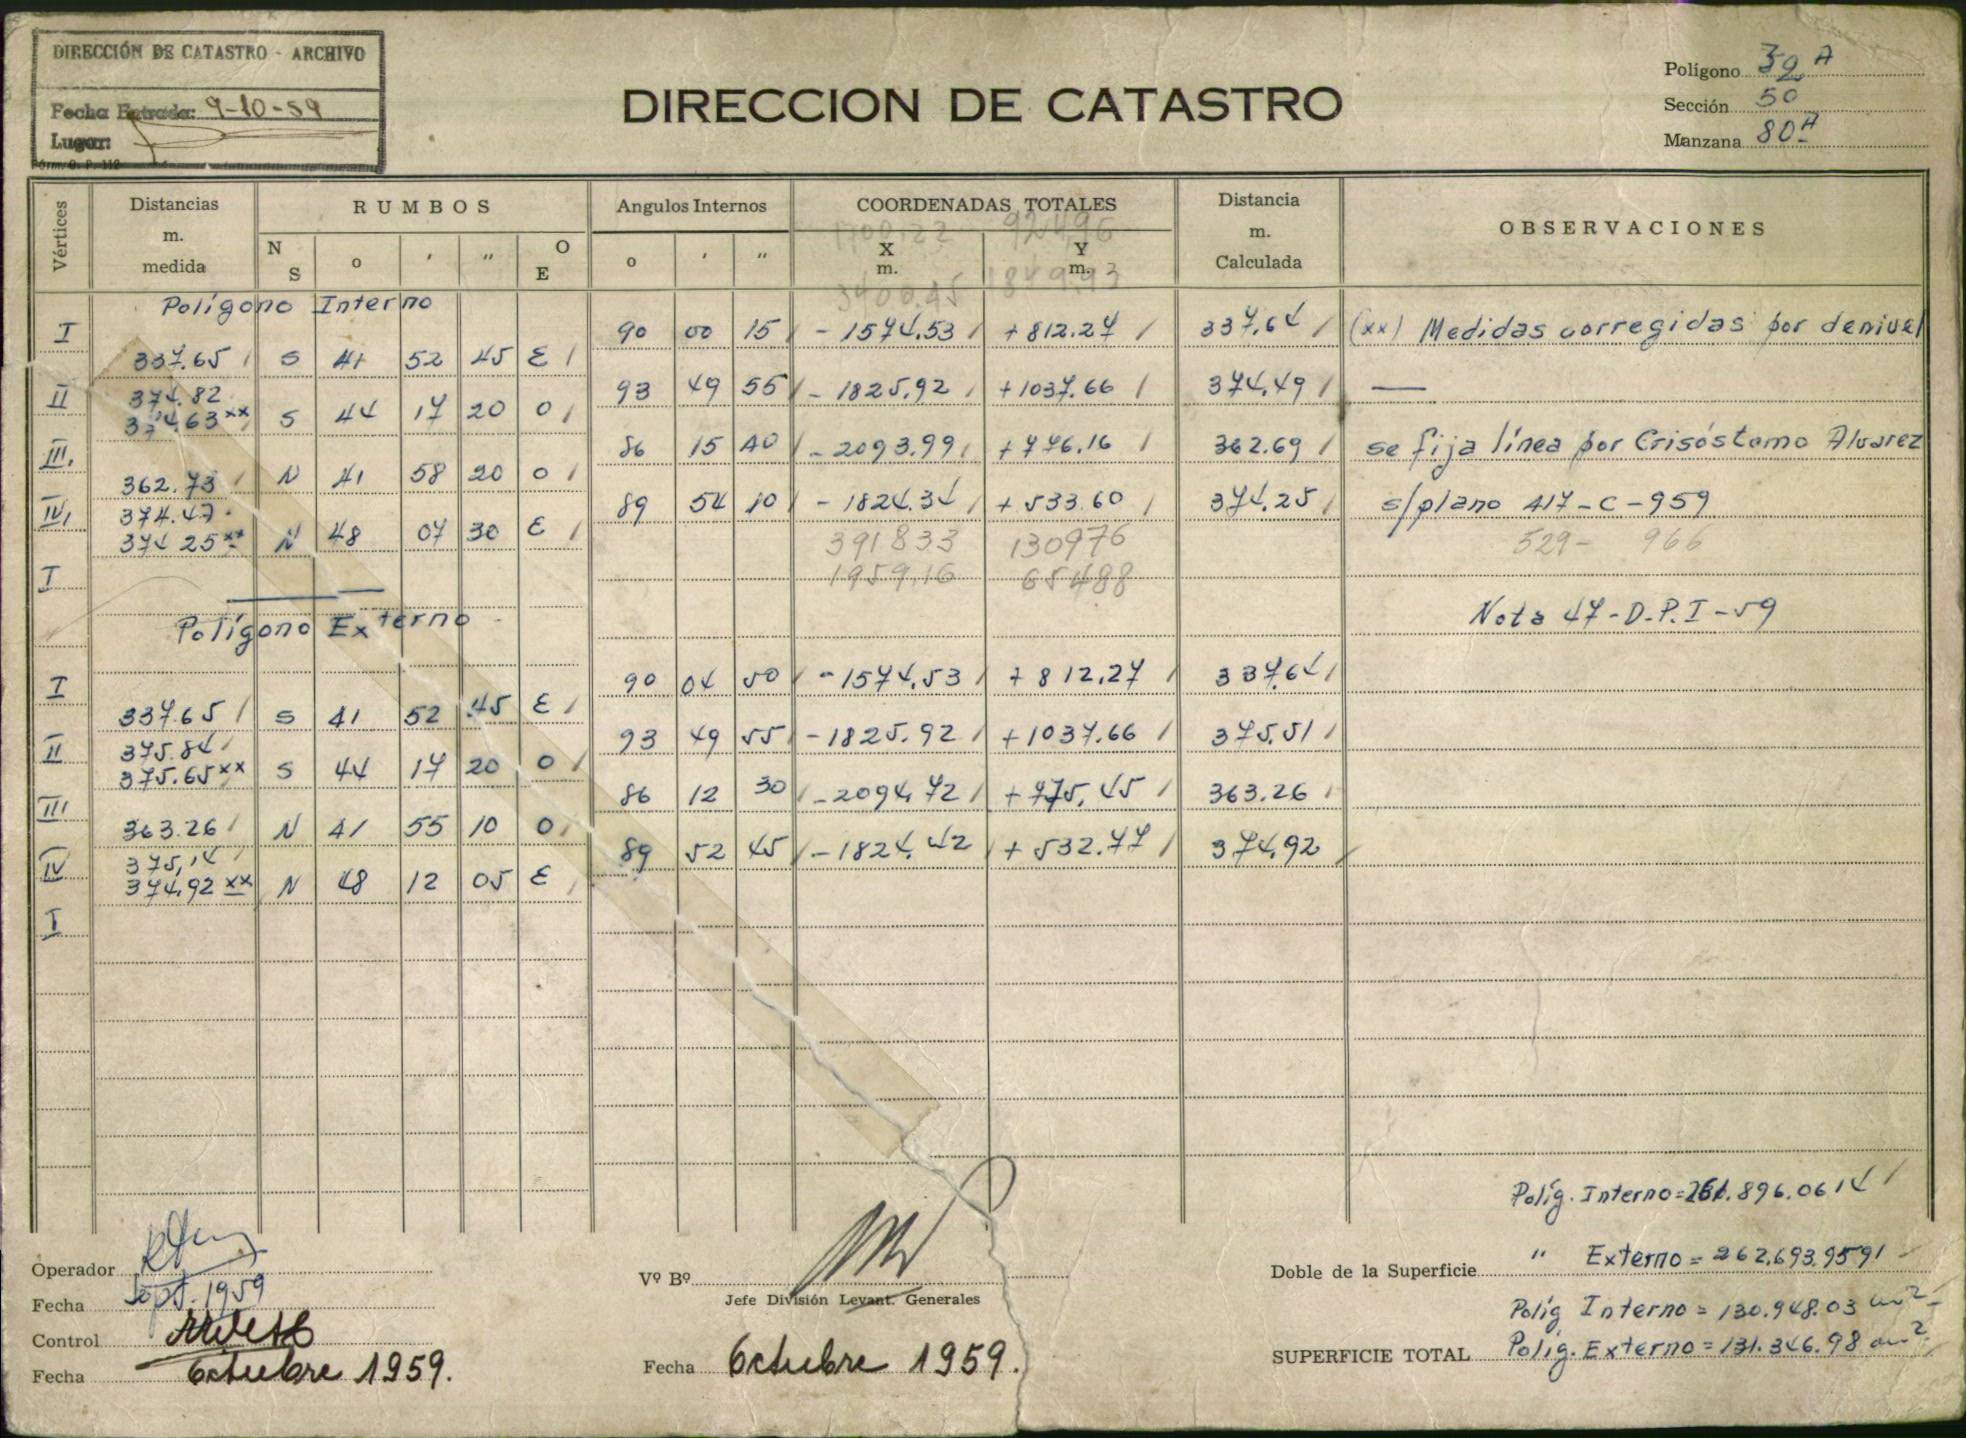 DIRECCIÓN DE CATASTRO - ARCHIVO
Fecha Entrada: 9-10-59
Lugar:
Form. G. P. 112
DIRECCION DE CATASTRO
Polígono 32 A
Sección 50
Manzana 80A
Vértices
Distancias m. medida
RUMBOS
N S o ' " O E
Angulos Internos
o ' "
COORDENADAS TOTALES
X m. Y m.
92496
3400.45 184993
Distancia m. Calculada
OBSERVACIONES
Polígono Interno
I 90 00 15 - 1574.53 + 812.27 337.64 (xx) Medidas corregidas por denivel
337.65 S 41 52 45 E
II 374.82 93 49 55 - 1825.92 + 1037.66 374.49 —
374.63xx S 44 17 20 O
III. 86 15 40 - 2093.99 + 776.16 362.69 se fija línea por Crisóstomo Alvarez
362.73 N 41 58 20 O
IV 374.47 89 54 10 - 1824.34 + 533.60 374.25 s/plano 417-C-959
374 25xx N 48 07 30 E 391833 130976 529- 966
I 1959.16 65488
Polígono Externo Nota 47-D.P.I-59
I 90 04 50 - 1574.53 + 812.27 337.64
337.65 S 41 52 45 E
II 375.84 93 49 55 - 1825.92 + 1037.66 375.51
375.65xx S 44 17 20 O
III 86 12 30 - 2094.72 + 775.45 363.26
363.26 N 41 55 10 O
IV 375,14 89 52 45 - 1824.42 + 532.77 374.92
374.92 xx N 48 12 05 E
I
Polig. Interno = 261.896.0614
Operador
Fecha Sept. 1959
Control
Fecha Octubre 1959.
Vº Bº
Jefe División Levant. Generales
Fecha Octubre 1959.
Doble de la Superficie " Externo = 262.693.9591
Polig Interno = 130.948.03 m2
SUPERFICIE TOTAL Polig. Externo = 131.346.98 m2